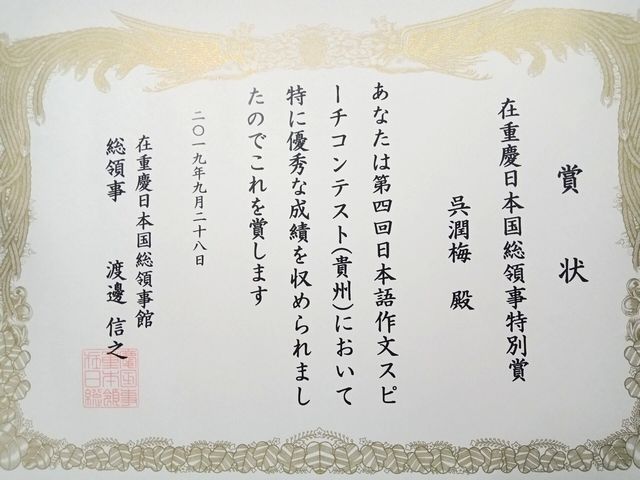 賞状
在重慶日本国総領事特別賞
呉潤梅 殿
あなたは第四回日本語作文スピ
ーチコンテスト(貴州)において
特に優秀な成績を収められまし
たのでこれを賞します
二〇一九年九月二十八日
在重慶日本国総領事館
総領事 渡邊 信之